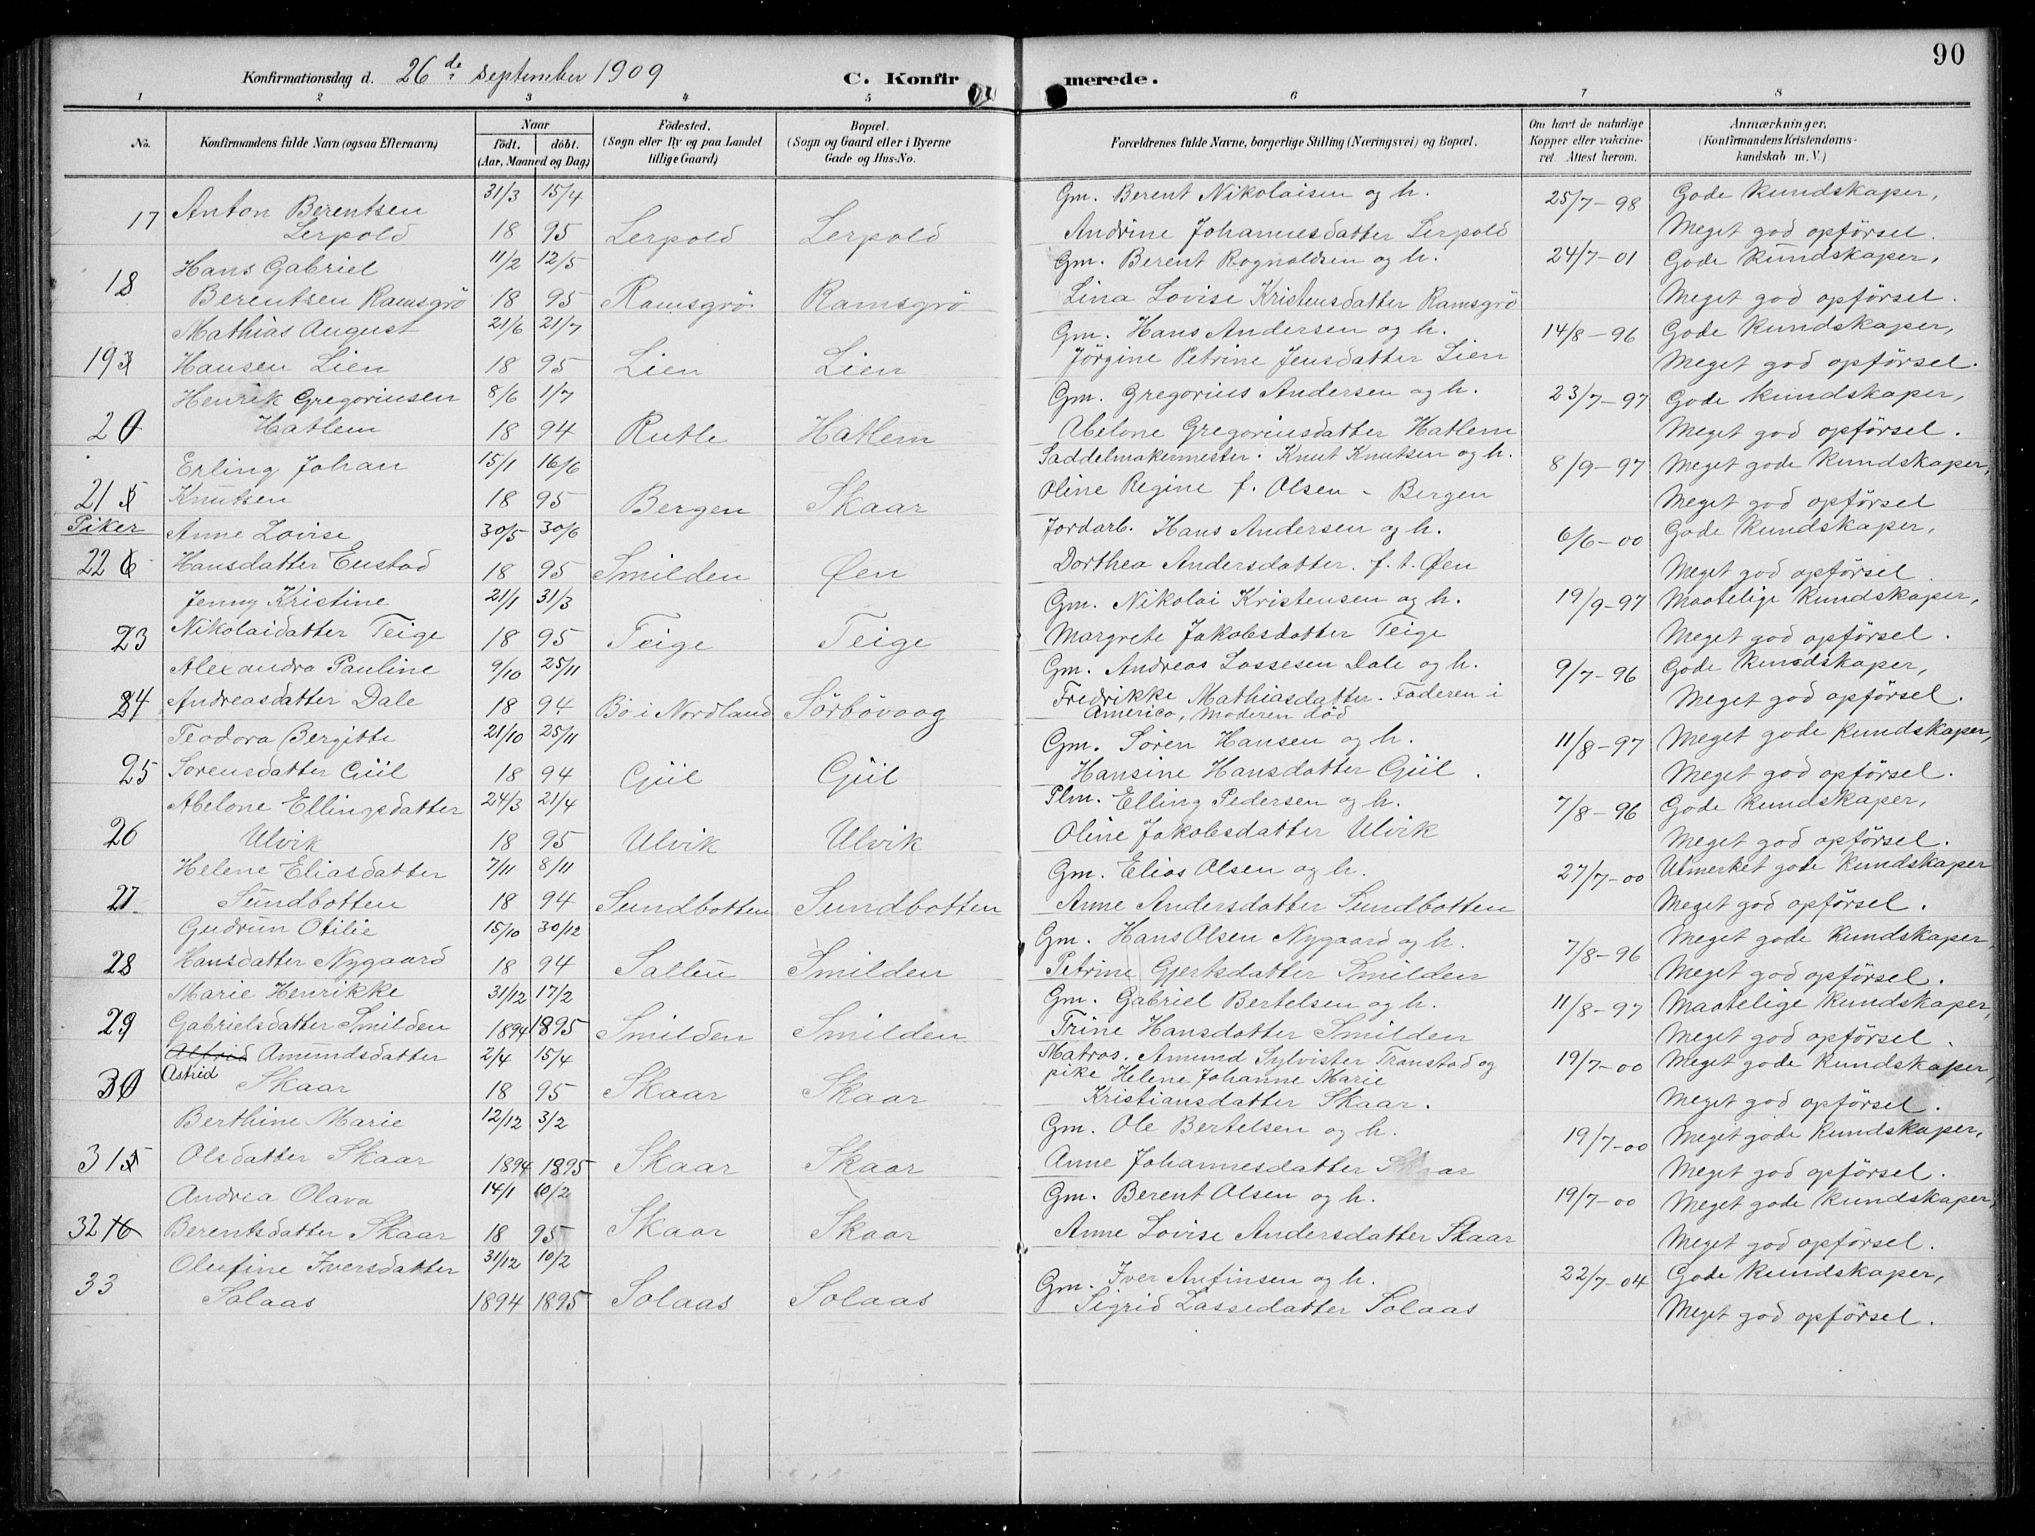 90
Konfirmationsdag d. 26de september 1909 C. Konfirmerede.
1 2 3 4 5 6 7 8
No. Konfirmandens fulde Navn (ogsaa Efternavn) Naar født. døbt. (Aar, Maaned og Dag) Fødested. (Sogn eller By og paa Landet tillige Gaard) Bopæl. (Sogn og Gaard eller i Byerne Gade og Hus-No. Forældrenes fulde Navne, borgerlige Stilling (Næringsvei) og Bopæl. Om havt de naturlige Kopper eller vakcineret. Attest herom. Anmærkninger. (Konfirmandens Kristendomskundskab m. V.)
Anton Berentsen 31/3 15/4 Gm. Berent Nikolaisen og h. 25/7-98 Gode kundskaper,
17 Lerpold 18 95 Lerpold Lerpold Andrine Johannesdatter Lerpold Meget god opförsel.
Hans Gabriel 11/2 12/5 Gm. Berent Rognaldsen og h. 24/7-01 Gode kundskaper,
18 Berentsen Ramsgrö 18 95 Ramsgrö Ramsgrö Lina Lovise Kristensdatter Ramsgrö Meget god opförsel.
Mathias August 21/6 21/7 Gm. Hans Andersen og h. 14/8-96 Gode kundskaper,
19 Hansen Lien 18 95 Lien Lien Jörgine Petrine Jensdatter Lien Meget god opförsel.
Henrik Gregoriusen 8/6 1/7 Gm. Gregorius Andersen og h. 23/7-97 Gode kundskaper,
20 Hatlem 18 94 Rutle Hatlem Abelone Gregoriusdatter Hatlem Meget god opförsel.
Erling Johan 15/1 16/6 Saddelmakermester. Knut Knutsen og h. 8/9-97 Meget gode kundskaper,
21 Knutsen 18 95 Bergen Skaar Oline Regine f. Olsen - Bergen Meget god opförsel
Piker Anne Lovise 30/5 30/6 Jordarb. Hans Andersen og h. 6/6-00 Gode kundskaper,
22 Hansdatter Enstad 18 95 Smilden Øen Dorthea Andersdatter. f. t. Øen Meget god opförsel.
Jenny Kristine 21/1 31/3 Gm. Nikolai Kristensen og h. 19/9-97 Maatelige kundskaper,
23 Nikolaidatter Teige 18 95 Teige Teige Margrete Jakobsdatter Teige Meget god opförsel.
Alexandra Pauline 9/10 25/11 Gm. Andreas Lassesen Dale og h. 9/7-96 Gode kundskaper,
24 Andreasdatter Dale 18 94 Bö i Nordland Sörbövaag Fredrikke Mathiasdatter. Faderen i Meget god opförsel.
America, Moderen död
Teodora Bergitte 21/10 25/11 Gm. Sören Hansen og h. 11/8-97 Meget gode kundskaper,
25 Sorensdatter Giil 18 94 Giil Giil Hansine Hansdatter Giil. Meget god opförsel.
Abelone Ellingsdatter 24/3 21/4 Plm. Elling Pedersen og h. 7/8-96 Gode kundskaper,
26 Ulvik 18 95 Ulvik Ulvik Oline Jakobsdatter Ulvik Meget god opförsel.
Helene Eliasdatter 7/11 8/11 Gm. Elias Olsen og h. 27/7-00 Utmerket gode kundskaper
27 Sundbotten 18 94 Sundbotten Sundbotten Anne Andersdatter Sundbotten Meget god opförsel.
Gudrun Otilie 15/10 30/12 Gm. Hans Olsen Nygaard og h. 7/8-96 Meget gode kundskaper,
28 Hansdatter Nygaard 18 94 Smilden Petrine Gjertsdatter Smilden Meget god opförsel.
Marie Henrikke 31/12 17/2 Gm. Gabriel Bertelsen og h. 11/8-97 Maatelige kundskaper,
29 Gabrielsdatter Smilden 1894 1895 Smilden Smilden Trine Hansdatter Smilden Meget god opförsel.
Alfrid Amundsdatter 2/4 15/4 Matros. Amund Sylvister Transtad og 19/7-00 Meget gode kundskaper,
30 Astrid Skaar 18 95 Skaar Skaar pike Helene Johanne Marie
Kristiansdatter Skaar. Meget god opförsel.
Berthine Marie 12/12 3/2 Gm. Ole Bertelsen og h. 19/7-00 Meget gode kundskaper,
31 Olsdatter Skaar 1894 1895 Skaar Skaar Anne Johannesdatter Skaar Meget god opförsel.
Andrea Olava 14/1 10/2 Gm. Berent Olsen og h. 19/7-00 Meget gode kundskaper,
32 Berentsdatter Skaar 18 95 Skaar Skaar Anne Lovise Andersdatter Skaar Meget god opförsel.
Olufine Iversdatter 31/12 10/2 Gm. Iver Anfinsen og h. 22/7-04 Gode kundskaper,
33 Solaas 1894 1895 Solaas Solaas Sigrid Lassedatter Solaas Meget god opförsel.